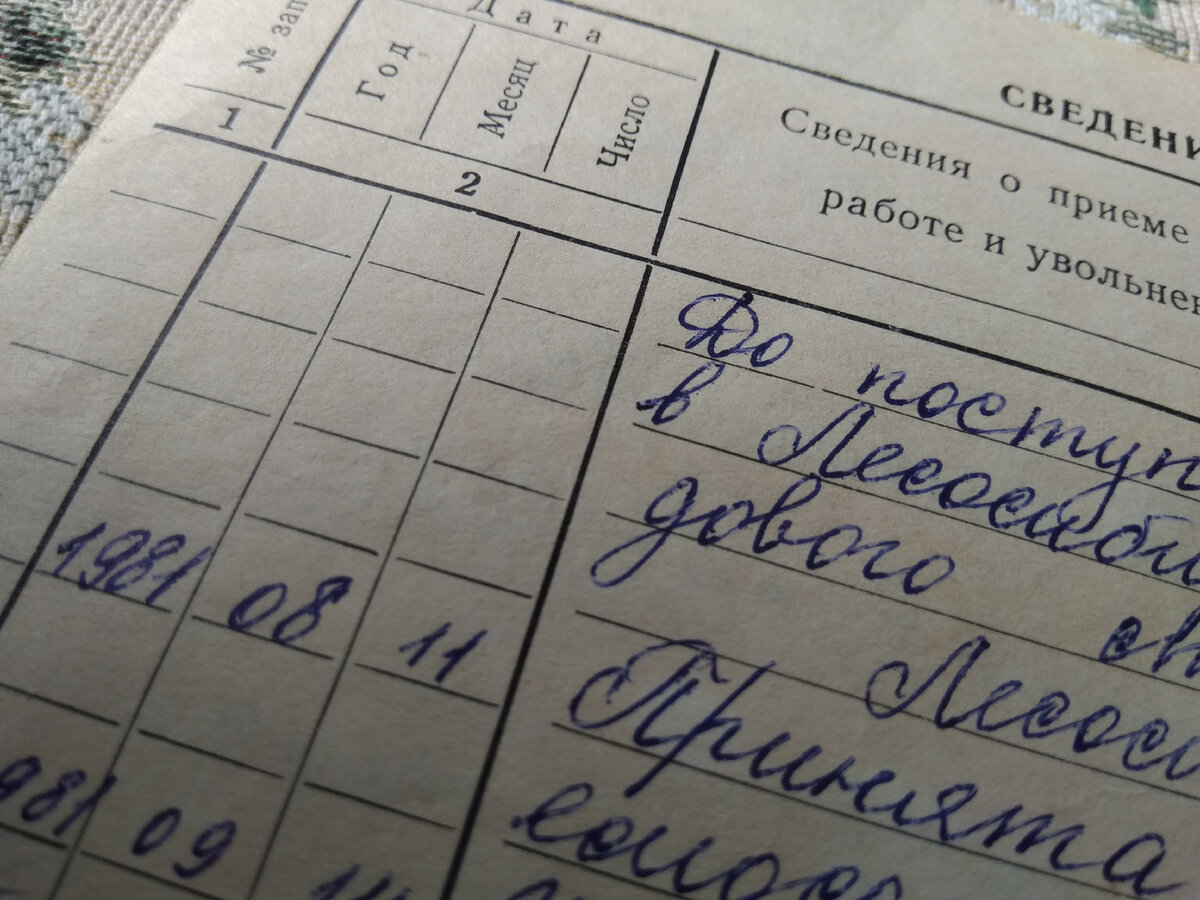 СВЕДЕНИ
№ зап
Дата
Год
Месяц
Число
Сведения о приеме
работе и увольнен
1
2
До поступ
в Лесосиби
дового
1981 08 11
Лесоси
Принята
981 09